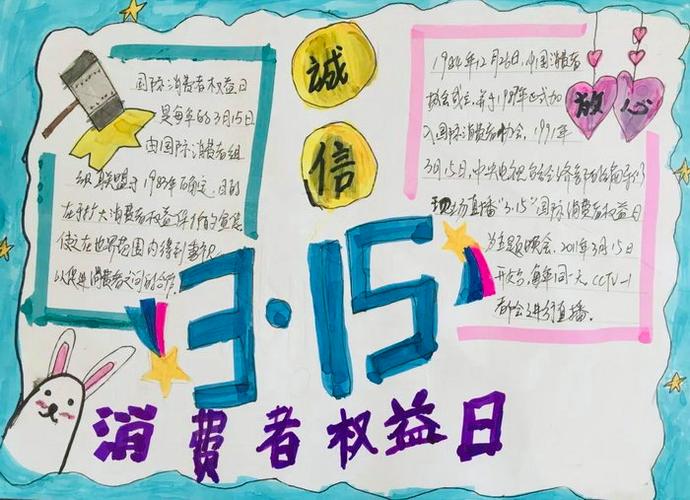 国际消费者权益日
是每年的3月15日
由国际消费者组
织联盟于1983年确定，目的
在于扩大消费者权益保护的宣传
使之在世界范围内得到重视
以促进消费者之间的合作
誠
信
1984年12月26日，中国消费者
协会成立，并于1987年正式加
入国际消费者协会，1991年
3月15日，中央电视台经济部
现场直播"3.15"国际消费者权益日
为主题晚会，2011年3月15日
开始，每年同一天，CCTV-1
都会进行直播。
放心
3·15
消费者权益日